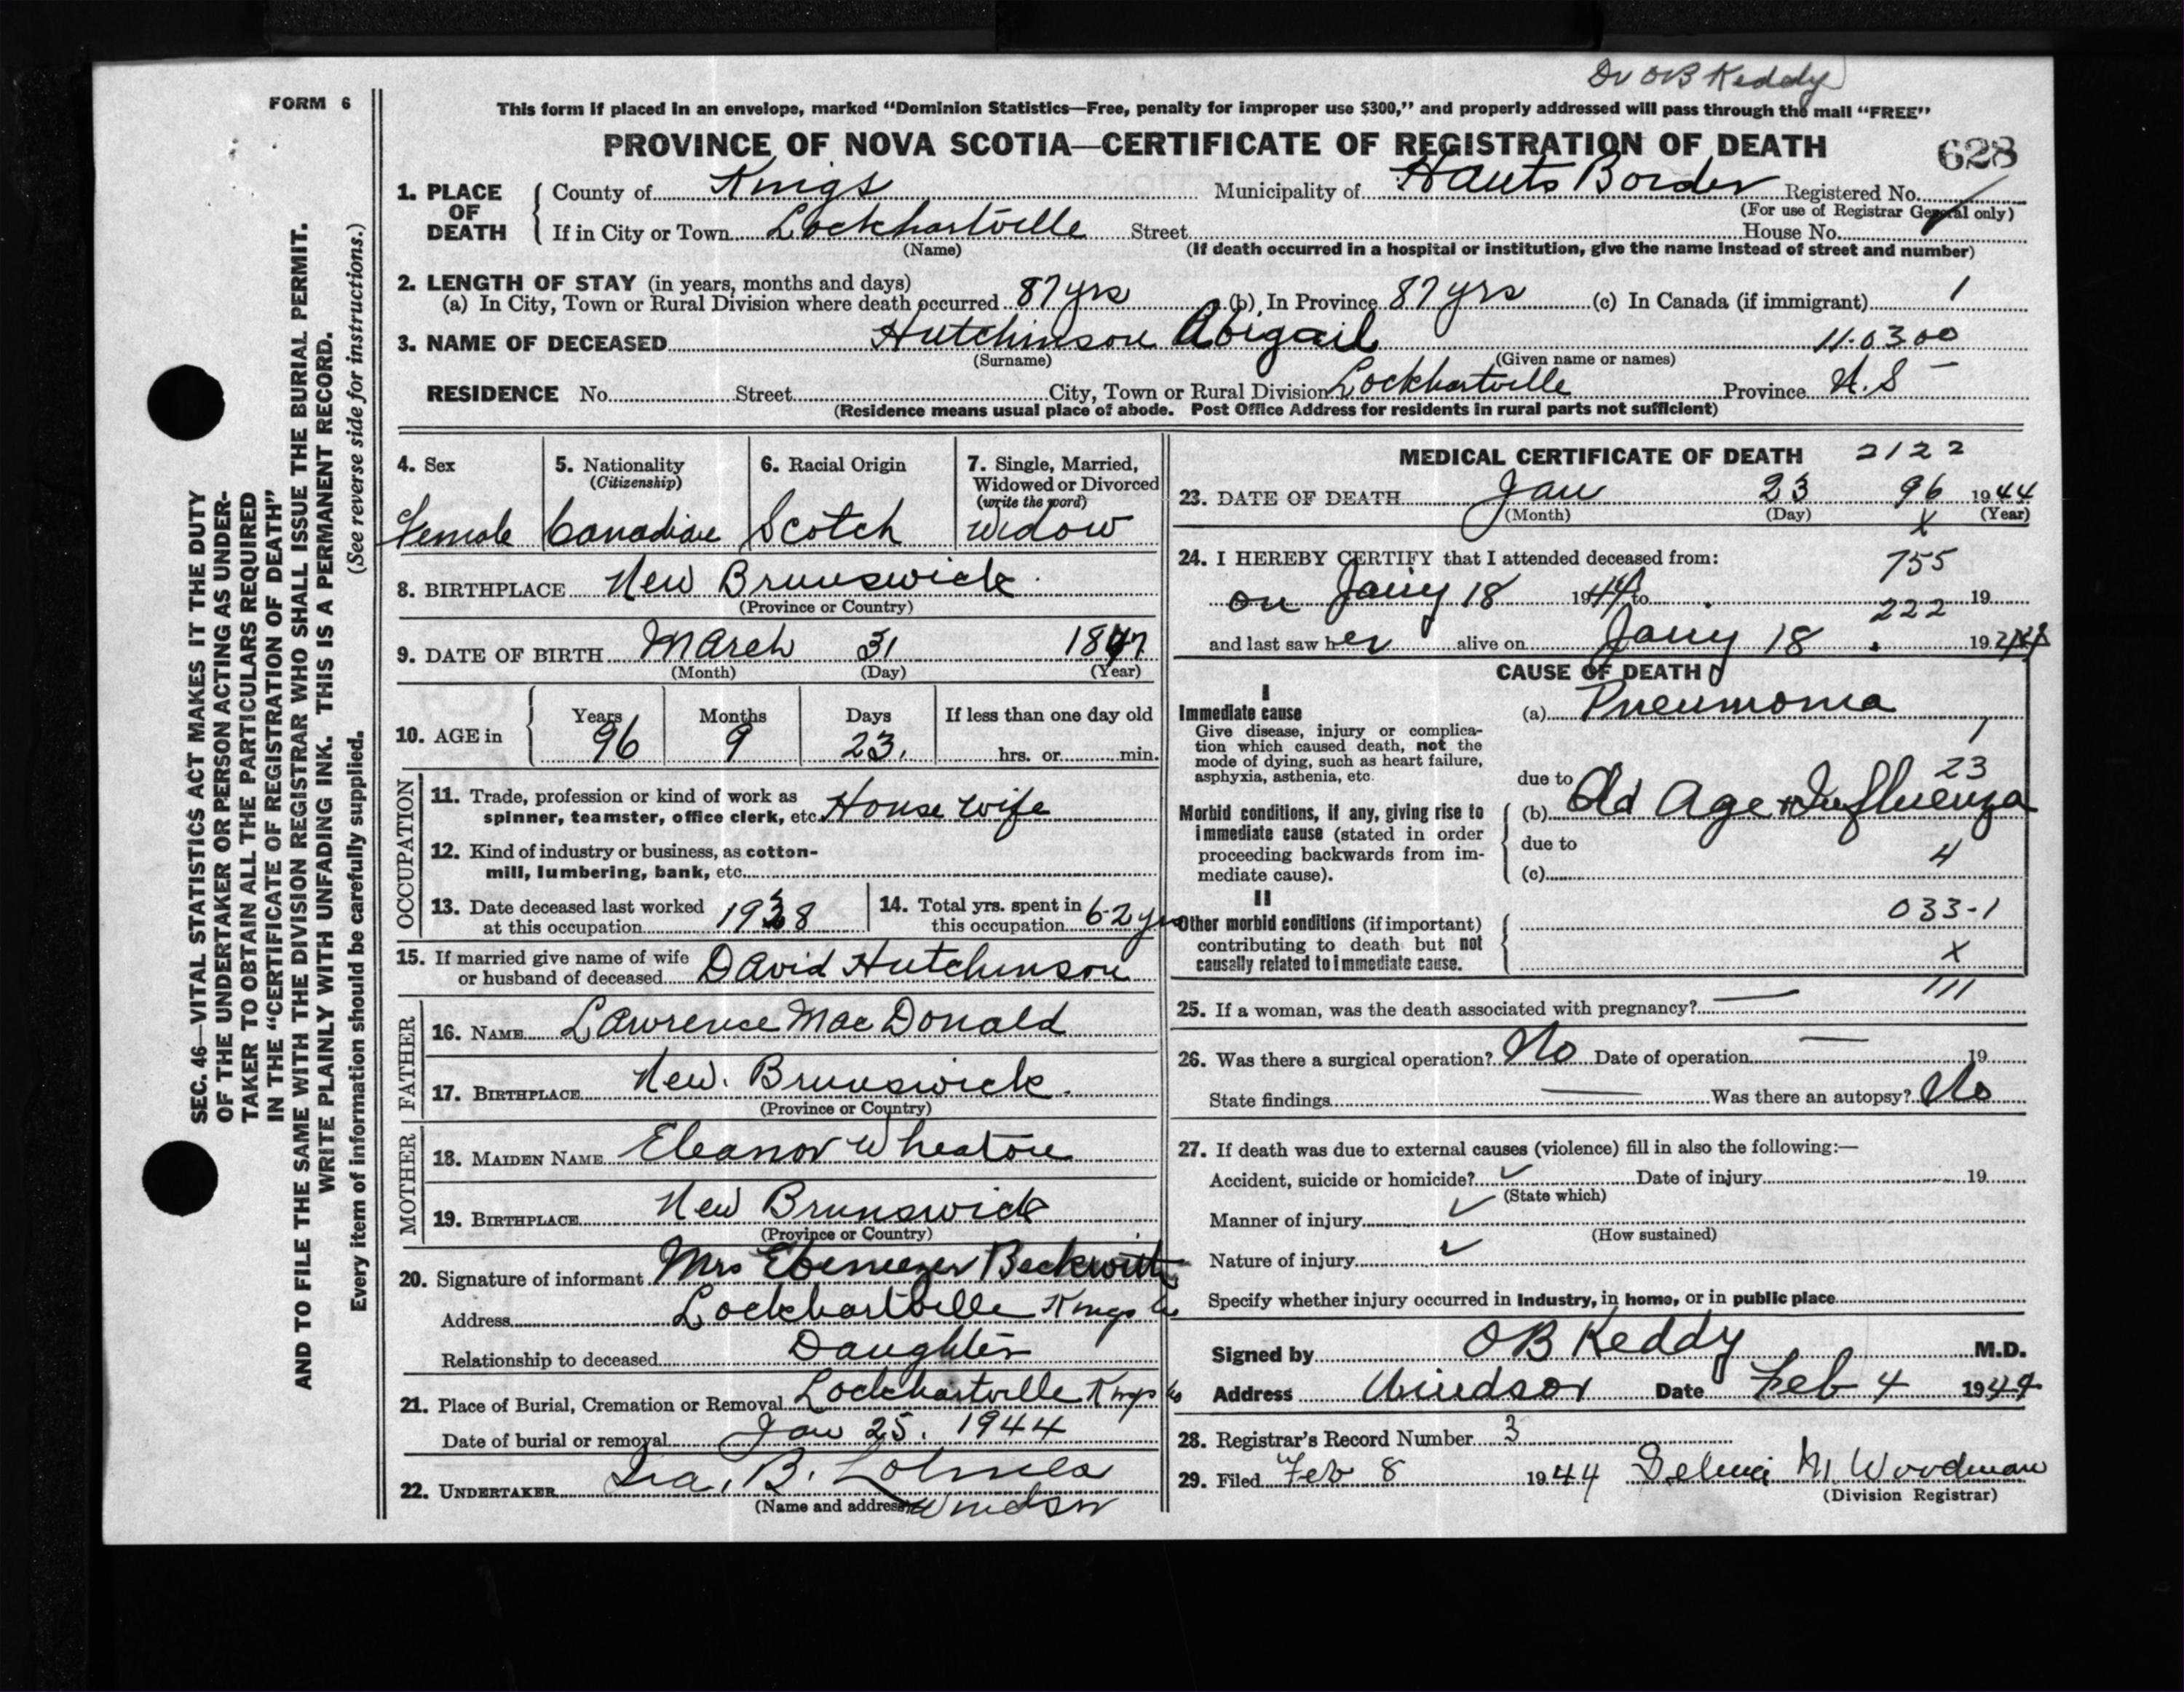 Dr OB Keddy
FORM 6
This form if placed in an envelope, marked “Dominion Statistics—Free, penalty for improper use $300,” and properly addressed will pass through the mail “FREE”
PROVINCE OF NOVA SCOTIA—CERTIFICATE OF REGISTRATION OF DEATH
628
1. PLACE OF DEATH
County of Kings Municipality of Hants Border Registered No.
(For use of Registrar General only)
If in City or Town Lockhartville Street House No.
(Name) (If death occurred in a hospital or institution, give the name instead of street and number)
2. LENGTH OF STAY (in years, months and days)
(a) In City, Town or Rural Division where death occurred 87 yrs (b) In Province 87 yrs (c) In Canada (if immigrant) 1
3. NAME OF DECEASED Hutchinson Abigail 11-0300
(Surname) (Given name or names)
RESIDENCE No. Street City, Town or Rural Division Lockhartville Province N.S
(Residence means usual place of abode. Post Office Address for residents in rural parts not sufficient)
4. Sex
Female
5. Nationality
(Citizenship)
Canadian
6. Racial Origin
Scotch
7. Single, Married,
Widowed or Divorced
(write the word)
Widow
8. BIRTHPLACE New Brunswick
(Province or Country)
9. DATE OF BIRTH March 31 1847
(Month) (Day) (Year)
10. AGE in
Years Months Days If less than one day old
96 9 23. hrs. or min.
OCCUPATION
11. Trade, profession or kind of work as
spinner, teamster, office clerk, etc. House wife
12. Kind of industry or business, as cotton-
mill, lumbering, bank, etc.
13. Date deceased last worked
at this occupation 1938
14. Total yrs. spent in
this occupation 62 yrs
15. If married give name of wife
or husband of deceased David Hutchinson
FATHER
16. NAME Lawrence MacDonald
17. BIRTHPLACE New. Brunswick.
(Province or Country)
MOTHER
18. MAIDEN NAME Eleanor Wheaton
19. BIRTHPLACE New Brunswick
(Province or Country)
20. Signature of informant Mrs Ebenezer Beckwith
Address Lockhartville Kings Co
Relationship to deceased Daughter
21. Place of Burial, Cremation or Removal Lockhartville Kings Co
Date of burial or removal Jan 25. 1944
22. UNDERTAKER Ira. B.
(Name and address) Windsor
MEDICAL CERTIFICATE OF DEATH 2122
23. DATE OF DEATH Jan 23 96 1944
(Month) (Day) X (Year)
24. I HEREBY CERTIFY that I attended deceased from:
755
on Jany 18 1944 to 19
222
and last saw her alive on Jany 18 1944
CAUSE OF DEATH
I
Immediate cause
Give disease, injury or complica-
tion which caused death, not the
mode of dying, such as heart failure,
asphyxia, asthenia, etc.
(a) Pneumonia
1
due to
23
Morbid conditions, if any, giving rise to
immediate cause (stated in order
proceeding backwards from im-
mediate cause).
(b) Old Age + Influenza
due to
4
(c)
II
Other morbid conditions (if important)
contributing to death but not
causally related to immediate cause.
033-1
X
111
25. If a woman, was the death associated with pregnancy? —
26. Was there a surgical operation? No Date of operation — 19
State findings — Was there an autopsy? No
27. If death was due to external causes (violence) fill in also the following:—
Accident, suicide or homicide? ✓ Date of injury 19
(State which)
Manner of injury ✓
(How sustained)
Nature of injury ✓
Specify whether injury occurred in Industry, in home, or in public place
Signed by OB Keddy M.D.
Address Windsor Date Feb 4 1944
28. Registrar's Record Number 3
29. Filed Feb 8 1944 M Woodman
(Division Registrar)
SEC. 46—VITAL STATISTICS ACT MAKES IT THE DUTY
OF THE UNDERTAKER OR PERSON ACTING AS UNDER-
TAKER TO OBTAIN ALL THE PARTICULARS REQUIRED
IN THE “CERTIFICATE OF REGISTRATION OF DEATH”
AND TO FILE THE SAME WITH THE DIVISION REGISTRAR WHO SHALL ISSUE THE BURIAL PERMIT.
WRITE PLAINLY WITH UNFADING INK. THIS IS A PERMANENT RECORD.
Every item of information should be carefully supplied. (See reverse side for instructions.)